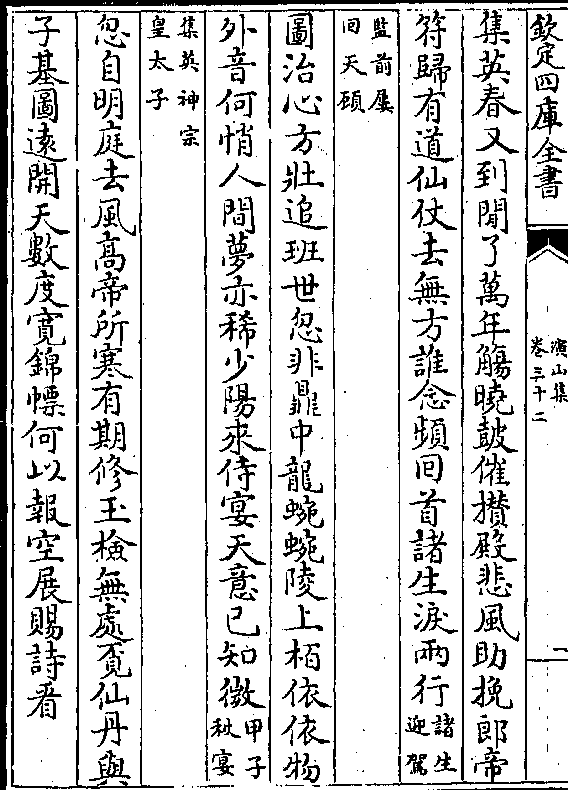 欽定四庫全書
演山集
卷三十二
集英春又到閒了萬年觴曉鼓催攢殿悲風助挽郎帝
符歸有道仙仗去無方誰念頻回首諸生淚兩行諸生迎駕
監前屢回天顧
圖治心方壯追班世忽非鼎中龍蜿蜿陵上栢依依物
外音何悄人間夢亦稀少陽來侍宴天意已知微甲子秋宴
集英神宗皇太子
忽自明庭去風高帝所寒有期修玉檢無處覔仙丹與
子基圖遠開天數度寛錦幖何以報空展賜詩看